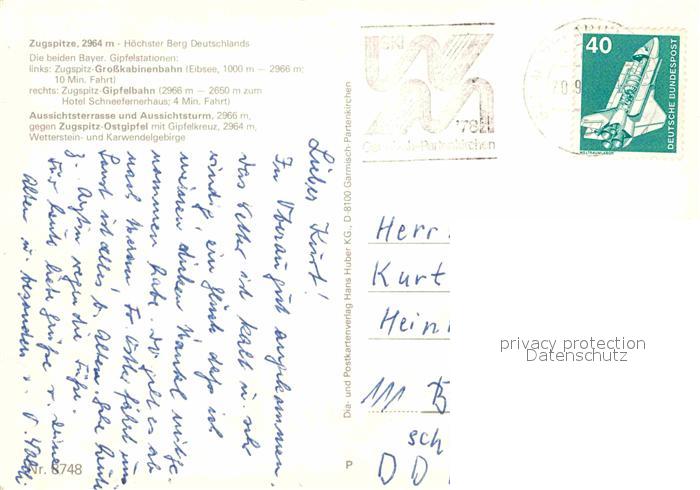 Zugspitze, 2964 m - Höchster Berg Deutschlands
Die beiden Bayer. Gipfelstationen:
links: Zugspitz-Großkabinenbahn (Eibsee, 1000 m — 2966 m;
10 Min. Fahrt)
rechts: Zugspitz-Gipfelbahn (2966 m — 2650 m zum
Hotel Schneefernerhaus; 4 Min. Fahrt)
Aussichtsterrasse und Aussichtsturm, 2966 m,
gegen Zugspitz-Ostgipfel mit Gipfelkreuz, 2964 m,
Wetterstein- und Karwendelgebirge
Lieber Kurt!
In Oberau gut angekommen,
das Wetter ist kalt u. sehr
windig, ein Glück daß ich
meinen dicken Mantel mitge-
nommen habe. So geht es ab
nach Meran. Fr. fährt uns
Sonst ist alles b. Alten gehe heute
z. wegen die Füße.
Für heute liebe Grüße v. Deine
Alten u. besonders v.
Nr. 8748
Dia- und Postkartenverlag Hans Huber KG., D 8100 Garmisch-Partenkirchen
P
SKI
'78
Garmisch-Partenkirchen
40
DEUTSCHE BUNDESPOST
WELTRAUMLABOR
Herr
Kurt
Hein
111 B
sch
D D
privacy protection
Datenschutz